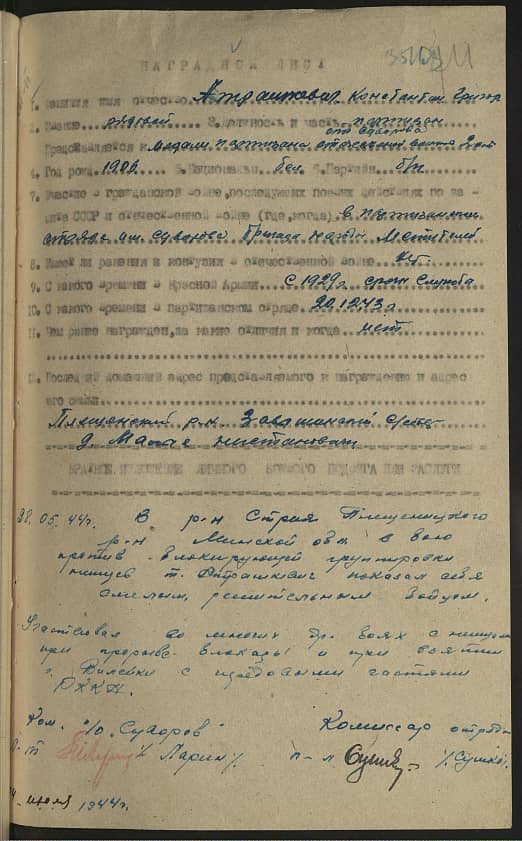 35169
НАГРАДНОЙ ЛИСТ
1. Фамилия имя отчество. Атрашкевич Константин Григор
2. Звание рядовой 3. Должность и часть партизан
отр. Суворова
Представляется к медали партизану отечественной войны 2 ст
4. Год рожд. 1906. 5. Национальн. бел. 6. Партийн. б/п
7. Участие в гражданской войне, последующих боевых действиях по за-
щите СССР и отечественной войне (где, когда) в партизанском
отряде им. Суворова бригада народн. Мстителей
8. Имеет ли ранения и контузии в отечественной войне нет
9. С какого времени в Красной Армии с 1929г. срочн служба
10. С какого времени в партизанском отряде 20.12.43г
11. Чем ранее награжден, за какие отличия и когда нет
12. Последний домашний адрес представляемого к награждению и адрес
его семьи
Плещенский р-н. Завишинский
д. Малые
КРАТКОЕ ИЗЛОЖЕНИЕ ЛИЧНОГО БОЕВОГО ПОДВИГА ИЛИ ЗАСЛУГИ
28.05.44г. В р-н Стрия Плещеницкого
р-н Минской обл в бою
против блокирующей группировки
немцев т. Атрашкевич показал себя
смелым, решительным бойцом.
Участвовал во многих др. боях с немцами
при прорыве блокады и при взятии
г. Вилейки с передовыми частями
РККА.
Ком. "Ю. Суворов" Комиссар отряда
/Ларин/ п-к /Сушко/
июля 1944г.